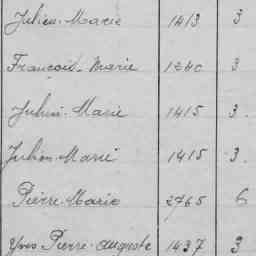 Julien-Marie 1413 3
François-Marie 1240 3
Julien-Marie 1415 3.
Julien-Marie 1415 3.
Pierre-Marie 2765 6
Yves Pierre-Auguste 1437 3